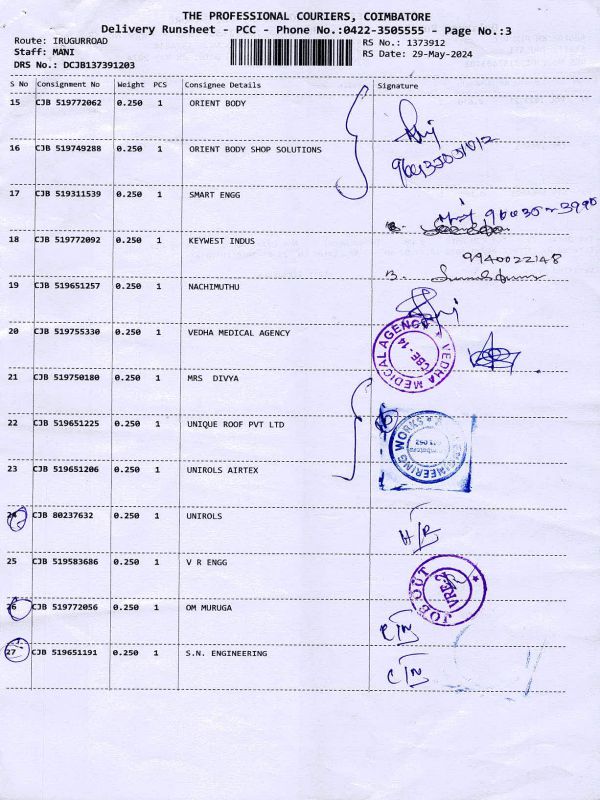 THE PROFESSIONAL COURIERS, COIMBATORE
Delivery Runsheet - PCC - Phone No.:0422-3505555 - Page No.:3
Route: IRUGURROAD RS No.: 1373912
Staff: MANI RS Date: 29-May-2024
DRS No.: DCJB137391203
S No Consignment No Weight PCS Consignee Details Signature
15 CJB 519772062 0.250 1 ORIENT BODY
16 CJB 519749288 0.250 1 ORIENT BODY SHOP SOLUTIONS
17 CJB 519311539 0.250 1 SMART ENGG
18 CJB 519772092 0.250 1 KEYWEST INDUS
9940022148
B.
19 CJB 519651257 0.250 1 NACHIMUTHU
20 CJB 519755330 0.250 1 VEDHA MEDICAL AGENCY
VEDHA MEDICAL AGENCY
CBE - 14
21 CJB 519750180 0.250 1 MRS DIVYA
22 CJB 519651225 0.250 1 UNIQUE ROOF PVT LTD
ENGINEERING WORKS
23 CJB 519651206 0.250 1 UNIROLS AIRTEX
24 CJB 80237632 0.250 1 UNIROLS
H/R
25 CJB 519583686 0.250 1 V R ENGG
JOB OUT
VRE-2
26 CJB 519772056 0.250 1 OM MURUGA
27 CJB 519651191 0.250 1 S.N. ENGINEERING